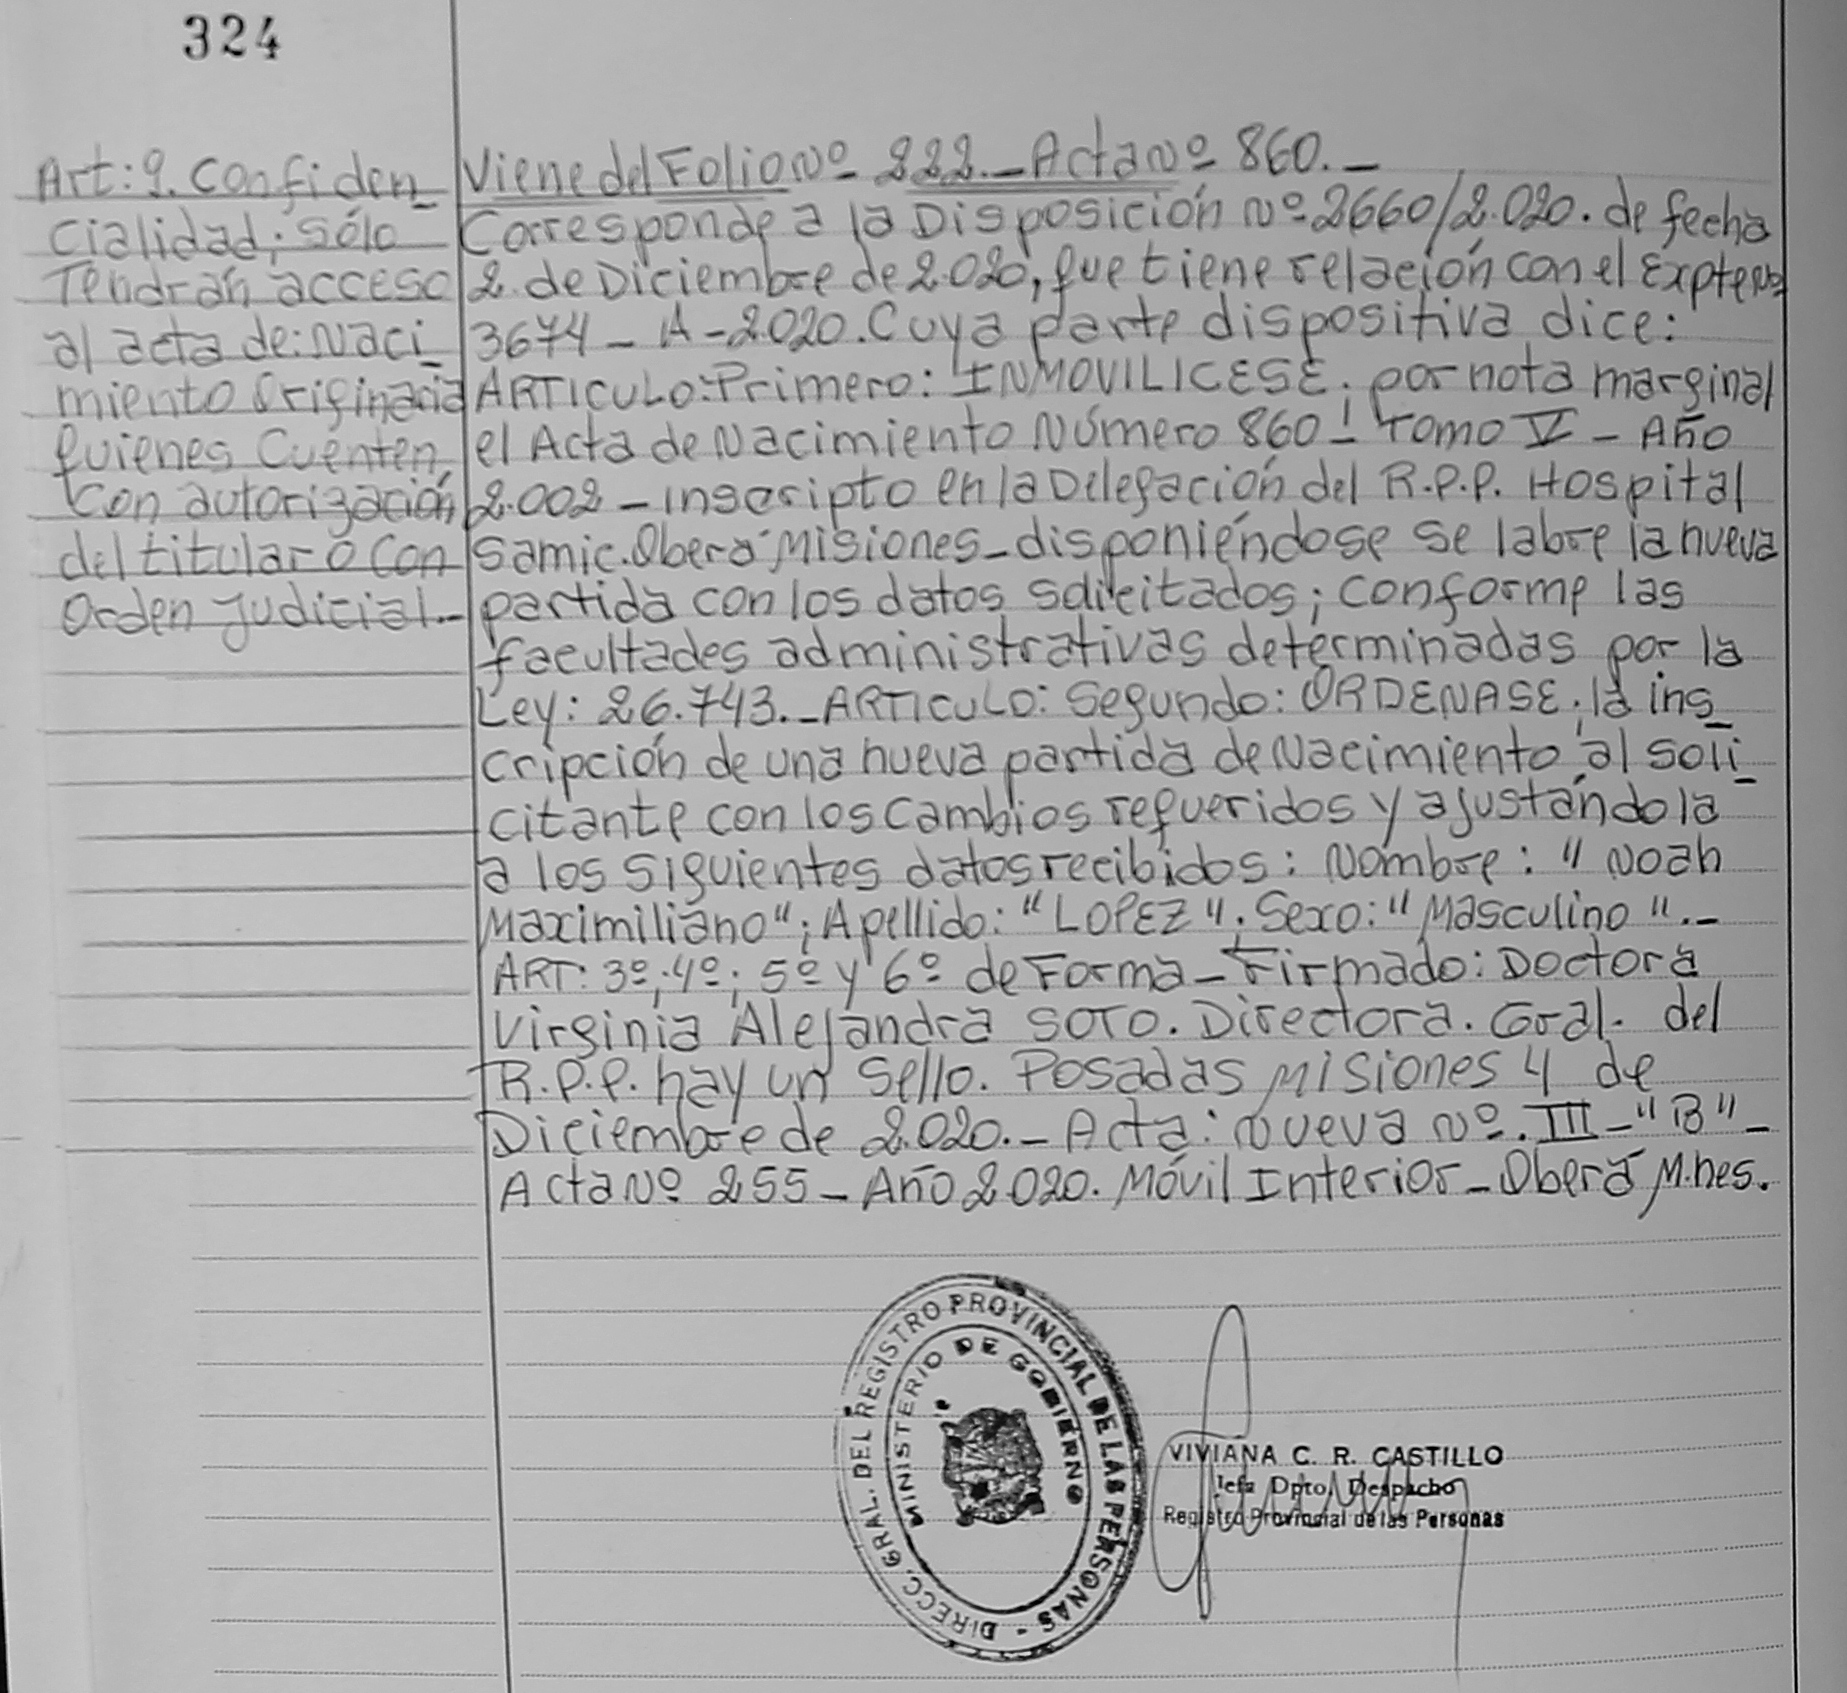 324
Art: 9. Confiden_
cialidad; sólo
Tendrán acceso
al acta de: Naci_
miento Originaria
quienes Cuenten,
con autorización
del titular o Con
Orden Judicial._
Viene del Folio Nº 222._Acta Nº 860._
Corresponde a la Disposición Nº 2660/2.020. de fecha
2 de Diciembre de 2.020, que tiene relación con el Expte Nº
3674 - A - 2.020. Cuya parte dispositiva dice:
ARTICULO: Primero: INMOVILICESE; por nota marginal
el Acta de Nacimiento Número 860 - Tomo V - Año
2.002 - inscripto en la Delegación del R.P.P. Hospital
Samic. Oberá Misiones - disponiéndose se labre la nueva
partida con los datos solicitados; conforme las
facultades administrativas determinadas por la
Ley: 26.743._ARTICULO: Segundo: ORDENASE; la ins_
cripción de una nueva partida de Nacimiento al soli_
citante con los cambios requeridos y ajustándola
a los siguientes datos recibidos: Nombre: "Noah
Maximiliano"; Apellido: "LOPEZ"; Sexo: "Masculino"._
ART: 3º; 4º; 5º y 6º de Forma - Firmado: Doctora
Virginia Alejandra SOTO. Directora. Gral. del
R.P.P. hay un Sello. Posadas Misiones 4 de
Diciembre de 2.020. - Acta: Nueva Nº. III - "B" -
Acta Nº 255 - Año 2020. Móvil Interior - Oberá M.nes.
DIRECC. GRAL. DEL REGISTRO PROVINCIAL DE LAS PERSONAS -
MINISTERIO DE GOBIERNO
VIVIANA C. R. CASTILLO
Jefa Dpto. Despacho
Registro Provincial de las Personas